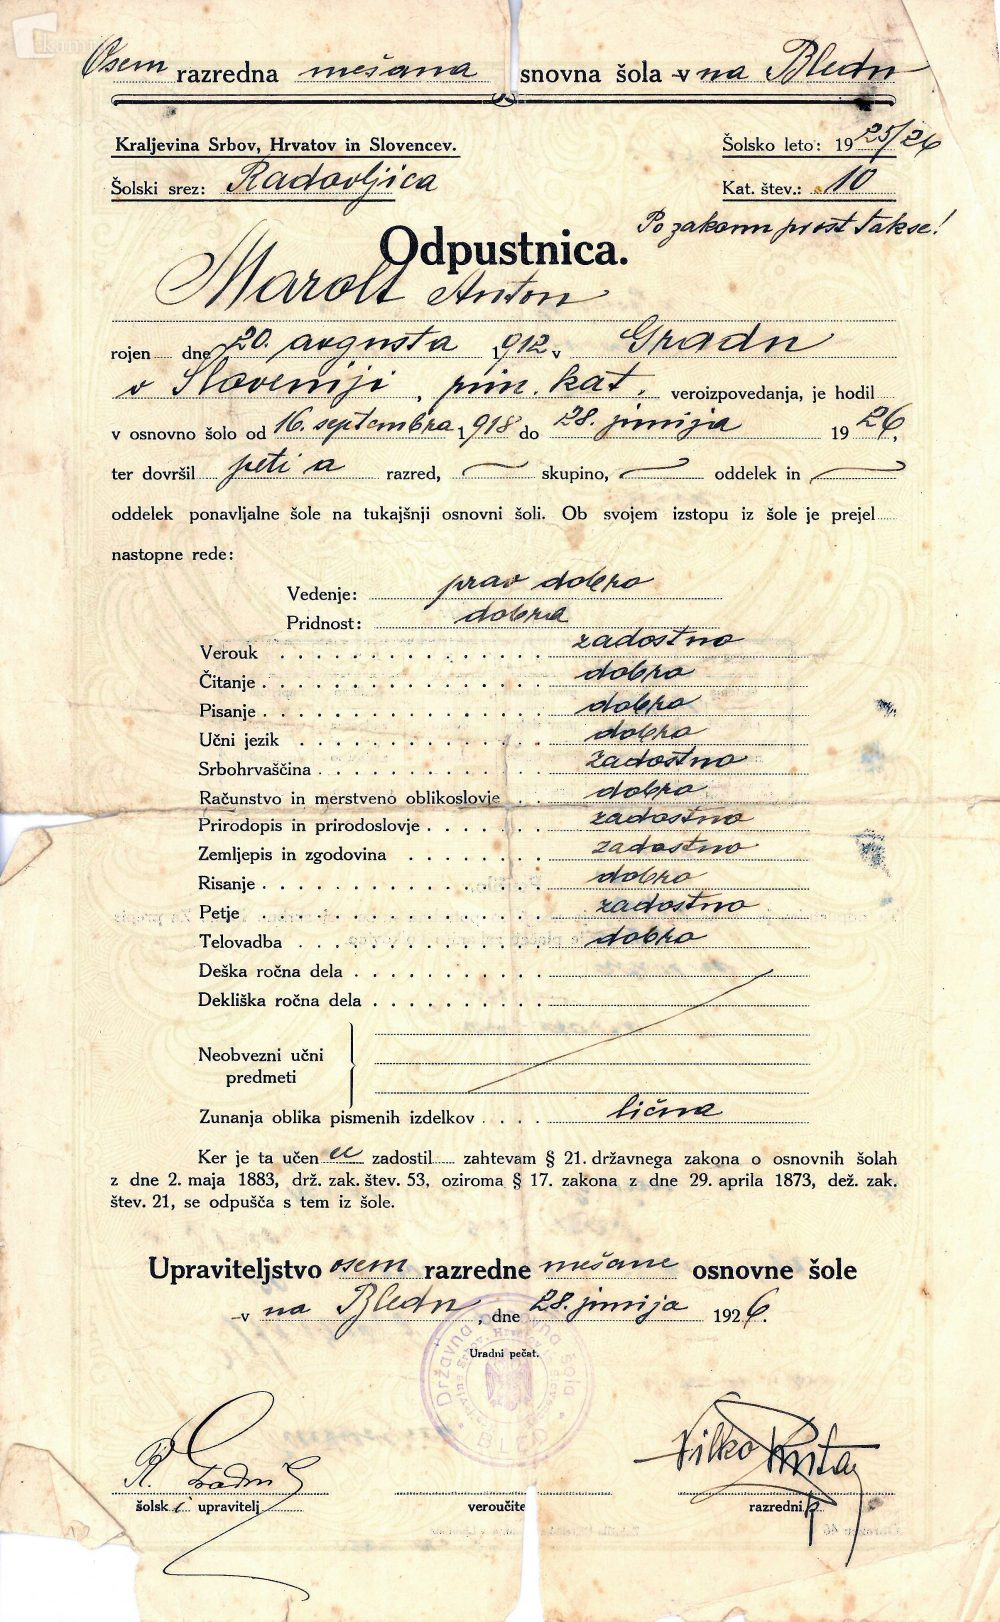 Osem razredna mešana snovna šola v na Bledu
Kraljevina Srbov, Hrvatov in Slovencev.
Šolsko leto: 1925/26
Šolski srez: Radovljica
Kat. štev.: 10
Po zakonu prost takse!
Odpustnica.
Marolt Anton
rojen dne 20. avgusta 1912 v Gradu
v Sloveniji, rim. kat. veroizpovedanja, je hodil
v osnovno šolo od 16. septembra 1918 do 28. junija 1926,
ter dovršil peti a razred, skupino, oddelek in
oddelek ponavljalne šole na tukajšnji osnovni šoli. Ob svojem izstopu iz šole je prejel
nastopne rede:
Vedenje: prav dobro
Pridnost: dobra
Verouk zadostno
Čitanje dobro
Pisanje dobro
Učni jezik dobro
Srbohrvaščina zadostno
Računstvo in merstveno oblikoslovje dobro
Prirodopis in prirodoslovje zadostno
Zemljepis in zgodovina zadostno
Risanje dobro
Petje zadostno
Telovadba dobro
Deška ročna dela
Dekliška ročna dela
Neobvezni učni
predmeti
Zunanja oblika pismenih izdelkov lična
Ker je ta učenec zadostil zahtevam § 21. državnega zakona o osnovnih šolah
z dne 2. maja 1883, drž. zak. štev. 53, oziroma § 17. zakona z dne 29. aprila 1873, dež. zak.
štev. 21, se odpušča s tem iz šole.
Upraviteljstvo osem razredne mešane osnovne šole
v na Bledu, dne 28. junija 1926.
Uradni pečat.
Državna osnovna šola
BLED
Vilko
šolski upravitelj
veroučite
razrednik